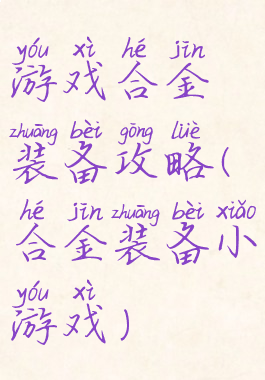 yóu xì hé jīn
游戏合金
zhuāng bèi gōng lüè
装备攻略(
hé jīn zhuāng bèi xiǎo
合金装备小
yóu xì
游戏)